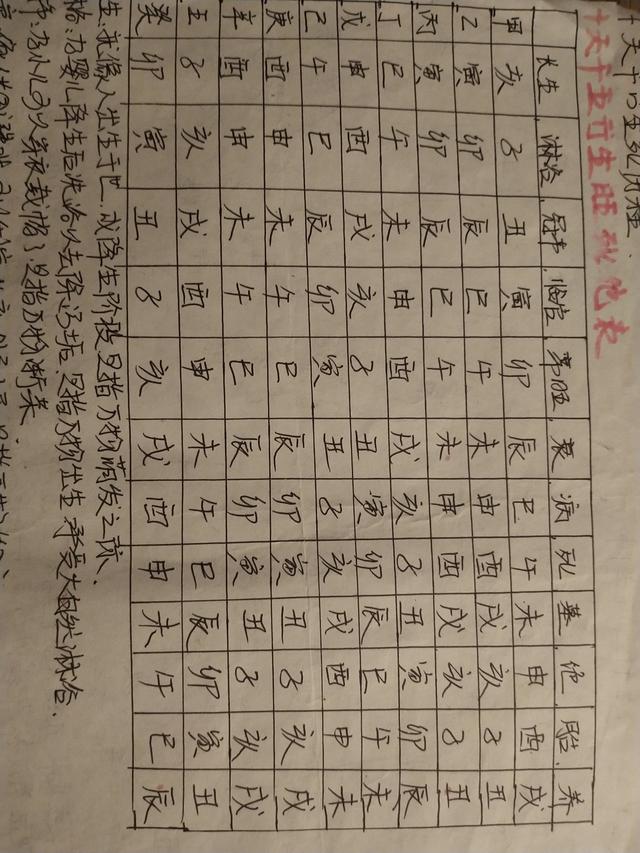 十天干五行生旺死绝表
长生 淋浴 冠带 临官 帝旺 衰 病 死 墓 绝 胎 养
甲 亥 子 丑 寅 卯 辰 巳 午 未 申 酉 戌
乙 寅 卯 辰 巳 午 未 申 酉 戌 亥 子 丑
丙 寅 卯 辰 巳 午 未 申 酉 戌 亥 子 丑
丁 巳 午 未 申 酉 戌 亥 子 丑 寅 卯 辰
戊 申 酉 戌 亥 子 丑 寅 卯 辰 巳 午 未
己 午 巳 辰 卯 寅 丑 子 亥 戌 酉 申 未
庚 酉 申 未 午 巳 辰 卯 寅 丑 子 亥 戌
辛 酉 申 未 午 巳 辰 卯 寅 丑 子 亥 戌
壬 子 亥 戌 酉 申 未 午 巳 辰 卯 寅 丑
癸 卯 寅 丑 子 亥 戌 酉 申 未 午 巳 辰
生:就像人出生于巴,或降生阶段是指万物萌发之际、
浴:为婴儿降生后洗浴以去除污垢、是指万物出生 承受大自然淋浴.
为小儿可以穿衣戴帽了、是指万物渐荣